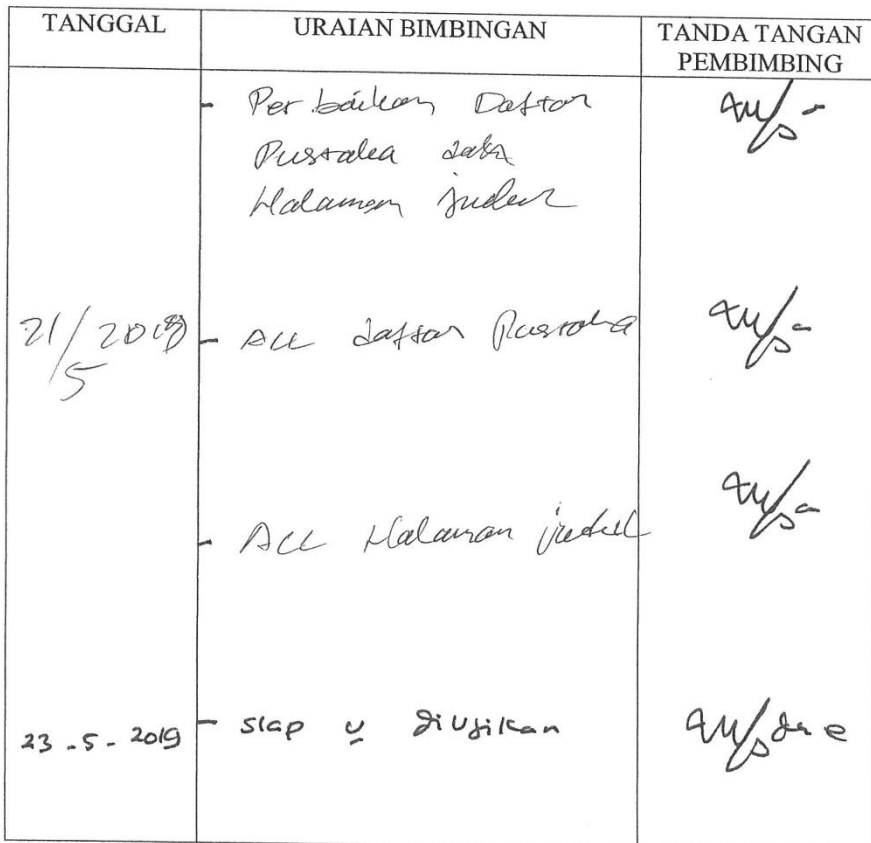 TANGGAL
URAIAN BIMBINGAN
TANDA TANGAN
PEMBIMBING
- Perbaikan Daftar
Pustaka dan
Halaman judul
21/5 2019
- Acc daftar Pustaka
- Acc Halaman judul
23-5-2019
- Siap u diujikan